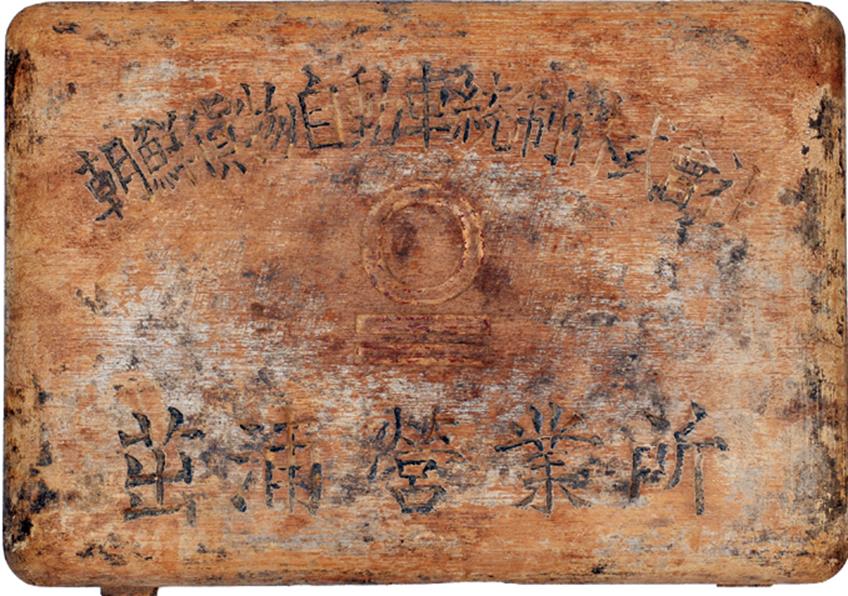 朝鮮貨物自動車統制株式會社
茁浦營業所